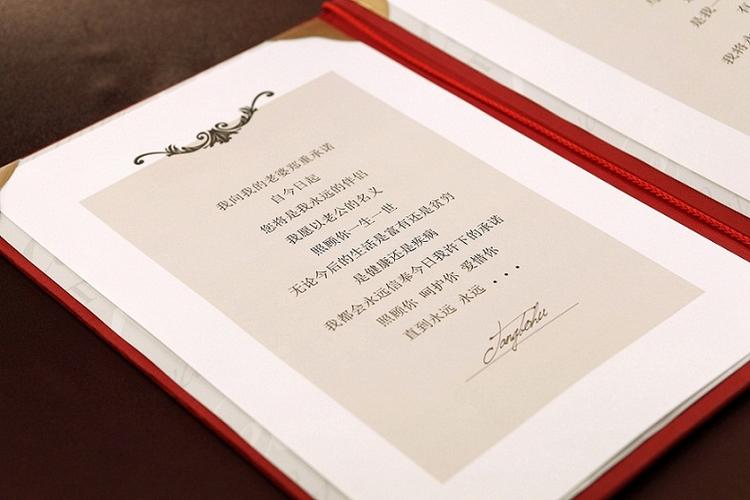 我向我的老婆郑重承诺
自今日起
您将是我永远的伴侣
我愿以老公的名义
照顾你一生一世
无论今后的生活是富有还是贫穷
是健康还是疾病
我都会永远信奉今日我许下的承诺
照顾你 呵护你 爱惜你
直到永远 永远 ...
是我一
我将永